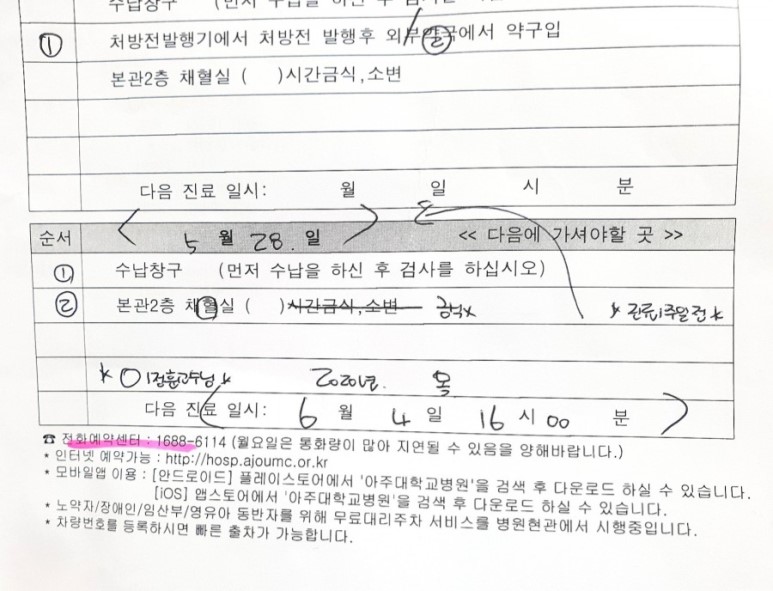 수납창구 (먼저 수납을 하신 후
① 처방전발행기에서 처방전 발행후 외부약국에서 약구입 ②
본관2층 채혈실 ( )시간금식,소변
다음 진료 일시: 월 일 시 분
순서 < 5 월 28. 일 > << 다음에 가셔야할 곳 >>
① 수납창구 (먼저 수납을 하신 후 검사를 하십시오)
② 본관2층 채혈실 ( )시간금식,소변 금식x * 진료1주일전 *
* 이정훈교수님 * 2020년. 목
다음 진료 일시: ( 6 월 4 일 16 시 00 분 )
☎ 전화예약센터 : 1688-6114 (월요일은 통화량이 많아 지연될 수 있음을 양해바랍니다.)
* 인터넷 예약가능 : http://hosp.ajoumc.or.kr
* 모바일앱 이용 : [안드로이드] 플레이스토어에서 '아주대학교병원'을 검색 후 다운로드 하실 수 있습니다.
[iOS] 앱스토어에서 '아주대학교병원'을 검색 후 다운로드 하실 수 있습니다.
* 노약자/장애인/임산부/영유아 동반자를 위해 무료대리주차 서비스를 병원현관에서 시행중입니다.
* 차량번호를 등록하시면 빠른 출차가 가능합니다.